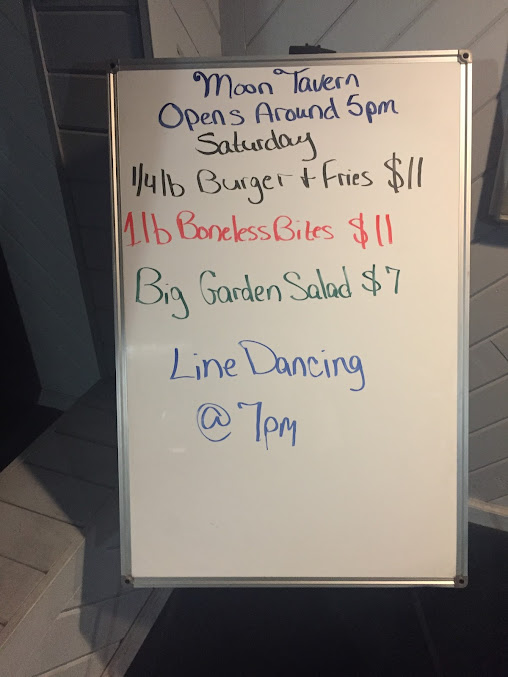 Moon Tavern
Opens Around 5pm
Saturday
1/4 lb Burger + Fries $11
1 lb Boneless Bites $11
Big Garden Salad $7
Line Dancing
@ 7pm